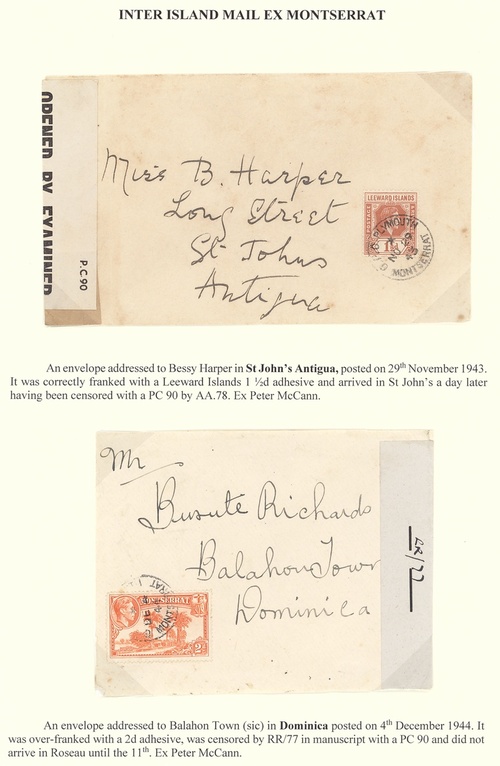 INTER ISLAND MAIL EX MONTSERRAT
OPENED BY EXAMINER
P.C 90
Miss B. Harper
Long Street
St Johns
Antigua
LEEWARD ISLANDS
POSTAGE
MONTSERRAT
An envelope addressed to Bessy Harper in St John's Antigua, posted on 29th November 1943.
It was correctly franked with a Leeward Islands 1 ½d adhesive and arrived in St John's a day later
having been censored with a PC 90 by AA.78. Ex Peter McCann.
Mr
Busute Richards
Balahon Town
Dominica
MONTSERRAT
2D
An envelope addressed to Balahon Town (sic) in Dominica posted on 4th December 1944. It
was over-franked with a 2d adhesive, was censored by RR/77 in manuscript with a PC 90 and did not
arrive in Roseau until the 11th. Ex Peter McCann.